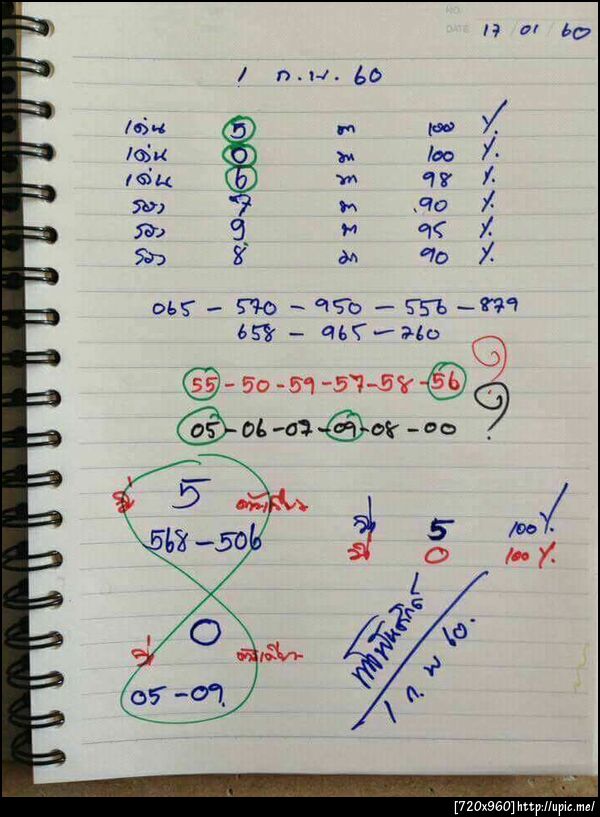 NO.
DATE 17 / 01 / 60
1 ก.พ. 60
เด่น 5 มา 100 %
เด่น 0 มา 100 %
เด่น 6 มา 98 %
รอง 7 มา 90 %
รอง 9 มา 95 %
รอง 8 มา 90 %
065 - 570 - 950 - 556 - 879
658 - 965 - 760
55 - 50 - 59 - 57 - 58 - 56
05 - 06 - 07 - 09 - 08 - 00
5 ตัวเดียว
568 - 506
5 100 %
0 100 %
0
ตัวเดียว
05 - 09
1 ก.พ 60.
[720x960]http://upic.me/